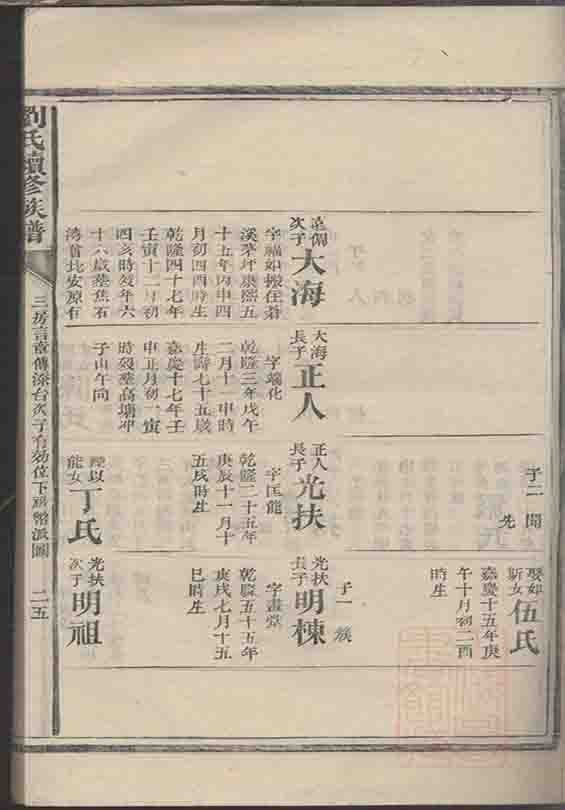 劉氏續修族譜
三房言章傳添台次子有効位下房幣派圖
二五
次子大海
字福如搬住若
溪茅坪康熙五
十五年丙申四
月初四酉時生
乾隆四十七年
壬寅十二月初
四亥時歿年六
十六歲塟焦石
灣曾比安原有
大海
長子正人
字端化
乾隆三年戊午
二月十一申時
生壽七十五歲
嘉慶十七年壬
申正月初一寅
時歿塟高塘冲
子山午向
子二 開
先
正人
長子光扶
字匡龍
乾隆二十五年
庚辰十一月十
五戌時生
娶
能女丁氏
娶如
新女伍氏
嘉慶十五年庚
午十月初二酉
時生
子一 簇
光扶
長子明棟
字畫堂
乾隆五十五年
庚戌七月十五
巳時生
光扶
次子明祖